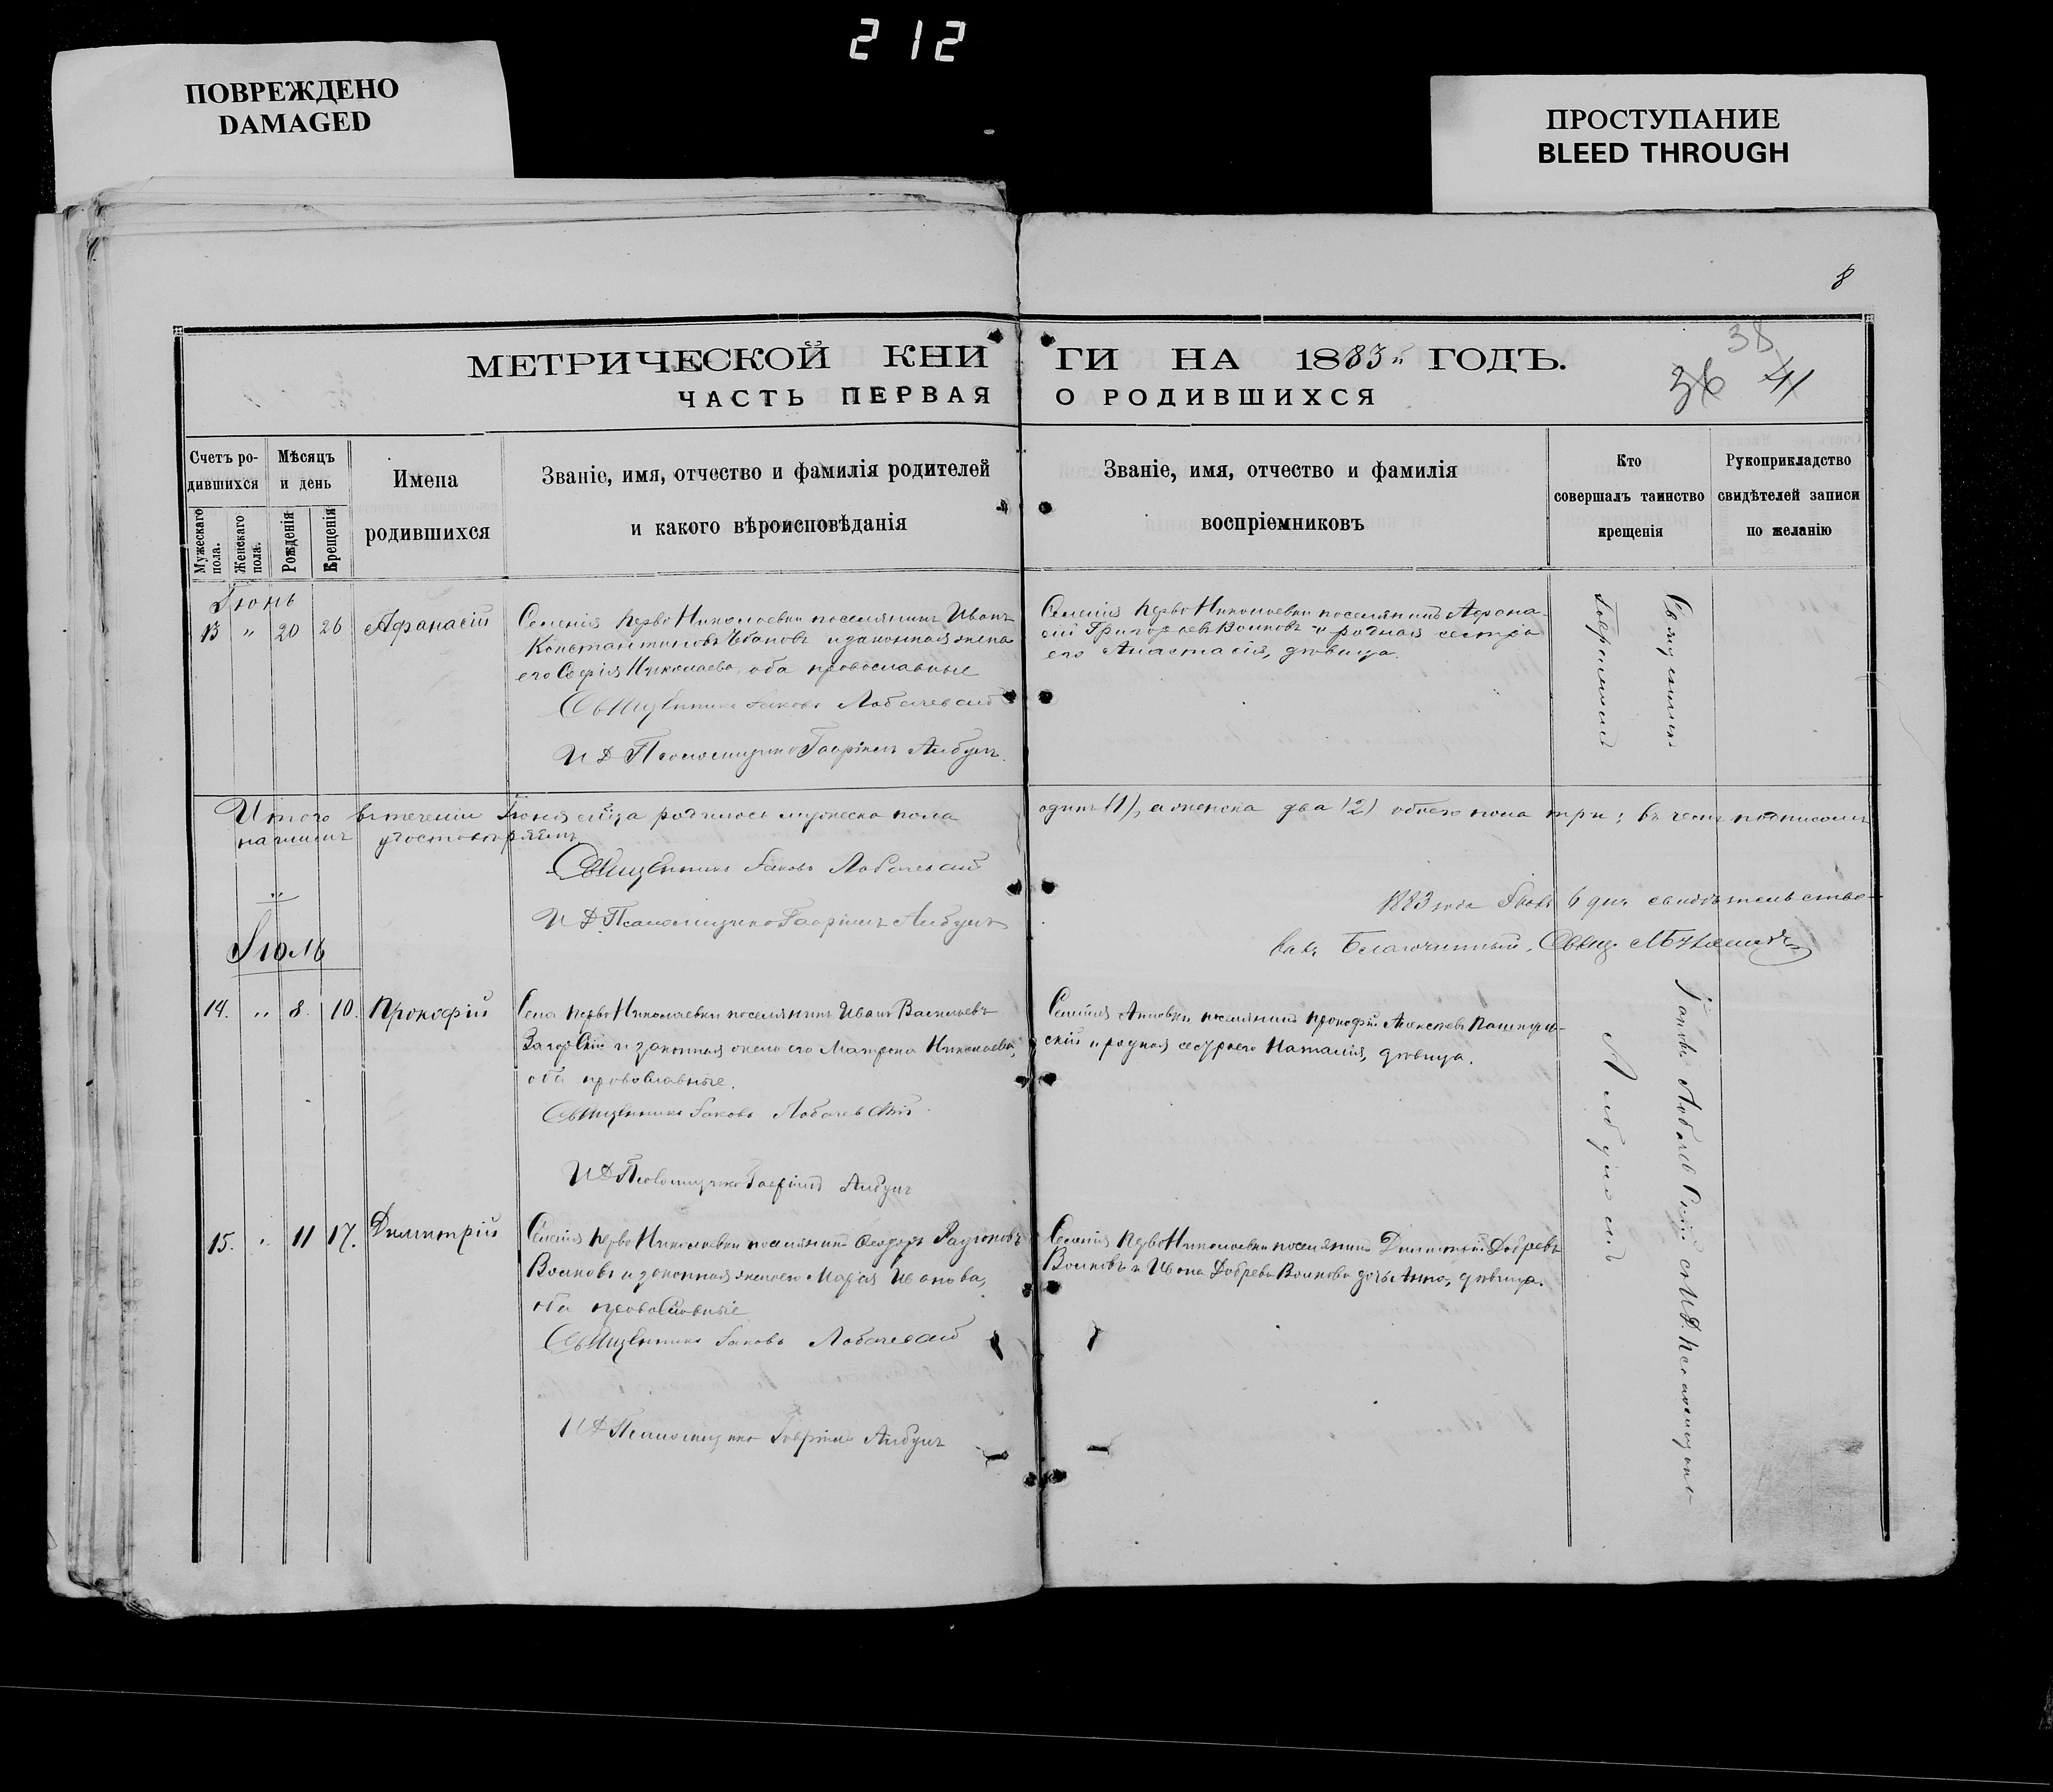 212
ПОВРЕЖДЕНО
DAMAGED
ПРОСТУПАНИЕ
BLEED THROUGH
8
38
36 41
МЕТРИЧЕСКОЙ КНИ
ГИ НА 1883 ГОДЪ.
ЧАСТЬ ПЕРВАЯ
О РОДИВШИХСЯ
Счетъ ро-
дившихся
Мужескаго пола.
Женскаго пола.
Мѣсяцъ
и день
Рожденія
Крещенія
Имена
родившихся
Званіе, имя, отчество и фамилія родителей
и какого вѣроисповѣданія
Званіе, имя, отчество и фамилія
воспріемниковъ
Кто
совершалъ таинство
крещенія
Рукоприкладство
свидѣтелей записи
по желанію
Іюнь
13 " 20 26 Афанасій
Селенія Перво Николаевки поселянинъ Иванъ
Константиновъ и законная жена
его Софія Николаева, оба православные
Священникъ Іаковъ Лобачевскій
И Д Псаломщика Гавріилъ Албулъ
Селенія Перво Николаевки поселянинъ Афана-
сій Григорьевъ Волковъ и родная сестра
его Анастасія, дѣвица.
Итого въ теченіи Іюня м̃ца родилось мужеска пола
одинъ (1), а женска два (2) обоего пола три; въ чемъ подписомъ
нашимъ удостовѣряемъ
Священникъ Іаковъ Лобачевскій
И Д Псаломщика Гавріилъ Албулъ
1883 года 6 дня свидѣтельство-
валъ Благочинный, Свящ.
Іюль
14. " 8. 10. Прокофій
Села Перво Николаевки поселянинъ Иванъ Васильевъ
Загорскій и законная жена его Матрона Николаева,
оба православные.
Священникъ Іаковъ Лобачевскій
И Д Псаломщика Гавріилъ Албулъ
Селенія Анновки поселянинъ Прокофій Алексѣевъ
скій и родная сестра его Наталія, дѣвица.
15. " 11 17. Димитрій
Селенія Перво Николаевки поселянинъ Ѳеодоръ Радіоновъ
Волковъ и законная жена его Марія Иванова,
оба православные
Священникъ Іаковъ Лобачевскій
И Д Псаломщика Гавріилъ Албулъ
Селенія Перво Николаевки поселянинъ Димитрій Добревъ
Волковъ и Ивана Добрева Волкова дочь Анна, дѣвица.
Священникъ Іаковъ Лобачевскій съ И.Д. Псаломщика
Гавріиломъ Албуломъ